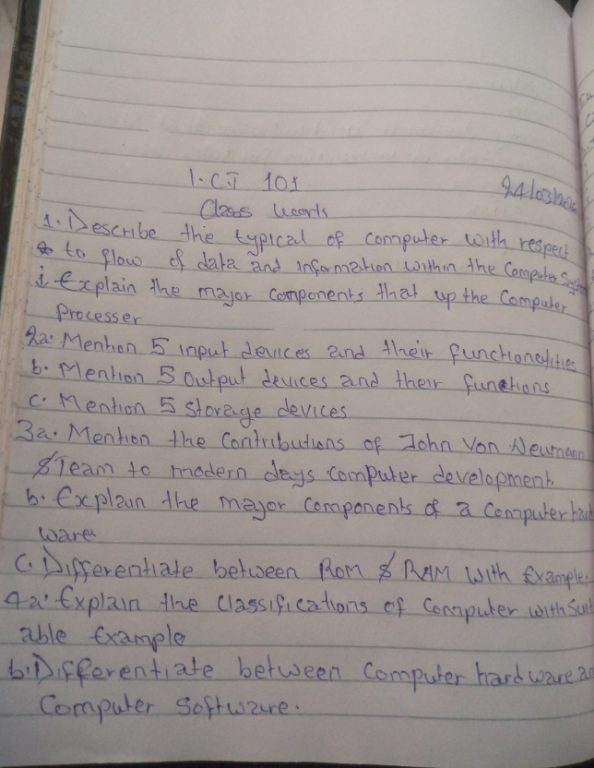 I.C.T 101
24/03/2026
Class works
1. Describe the typical of computer with respect
to flow of data and information within the Computer System
i. Explain the major components that up the Computer
Processer
2a. Mention 5 input devices and their functionalities
b. Mention 5 output devices and their functions
c. Mention 5 storage devices
3a. Mention the Contributions of John Von Neumann
& Team to modern days computer development.
b. Explain the major components of a Computer hard
ware
C. Differentiate between ROM & RAM with Example.
4a. Explain the classifications of Computer with Suit
able Example
b. Differentiate between Computer hardware an
Computer Software.